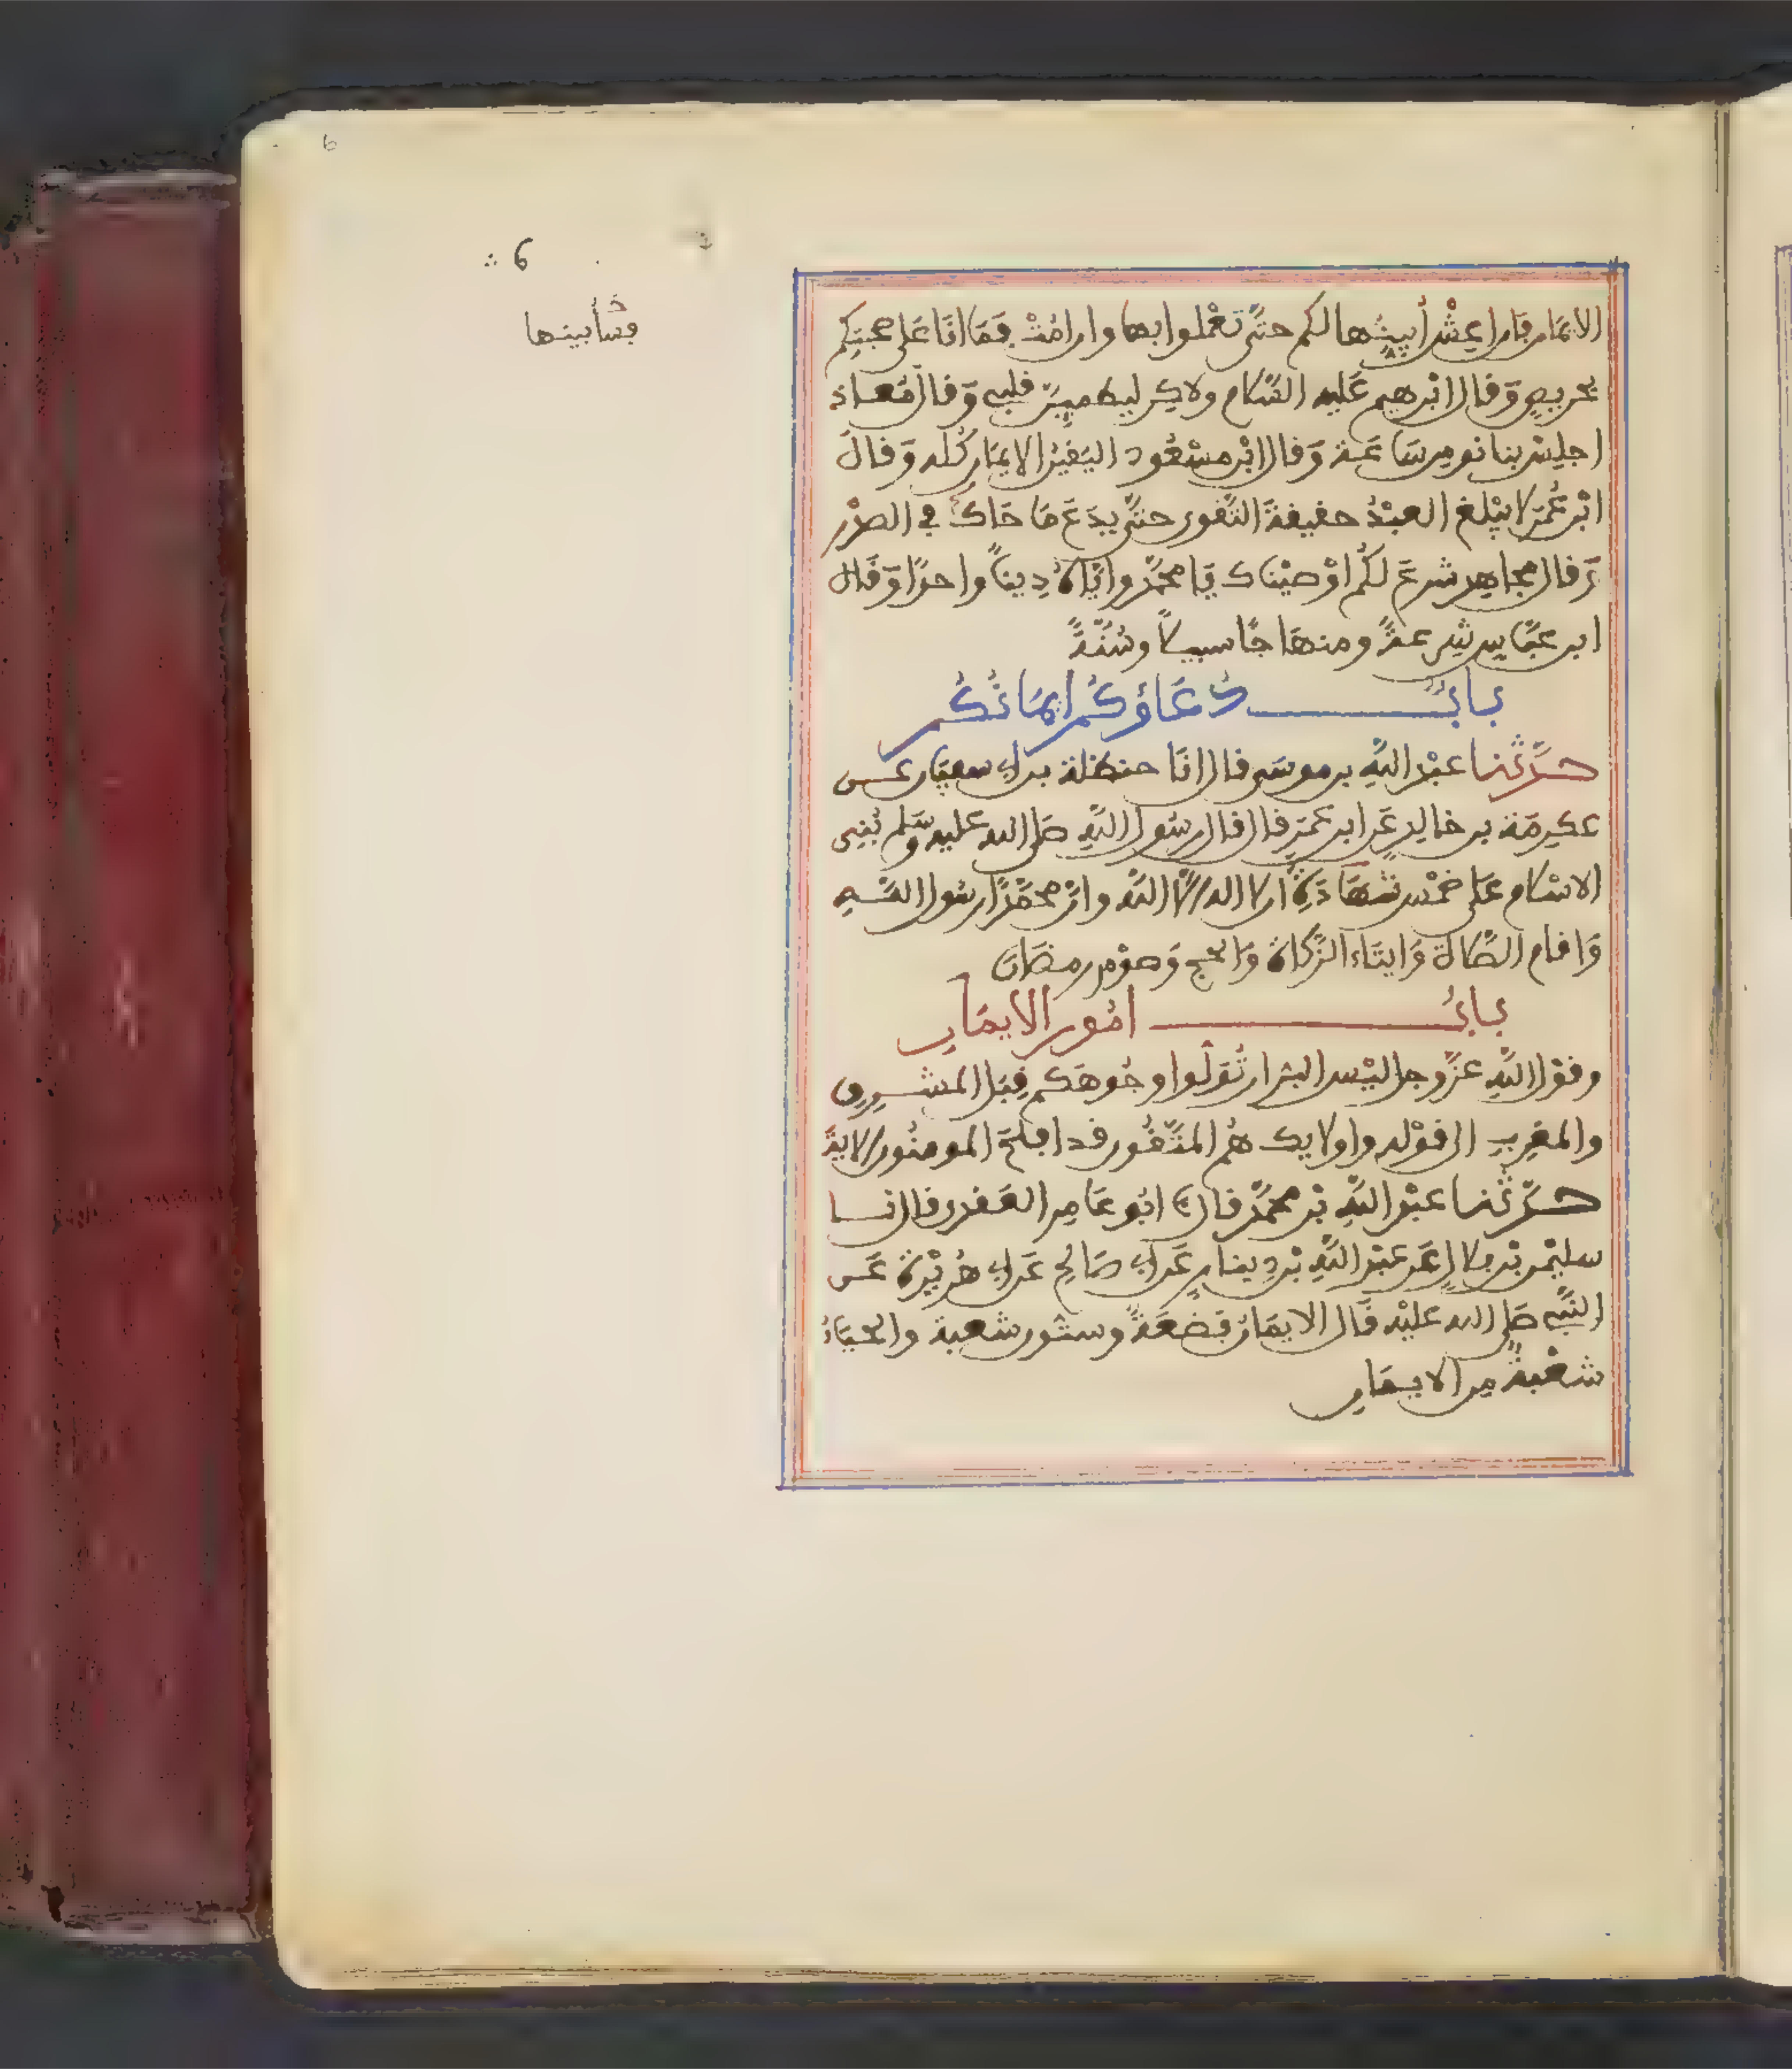 6
6
فسأبينها
الايمان فان اعش أبينها لكم حتى تعملوا بها وان امت فما انا على صحبتكم
بحريص وقال ابرهيم عليه السلام ولاكن ليطمين قلبي وقال معاذ
اجلس بنا نومن ساعة وقال ابن مسعود اليقين الايمان كله وقال
ابن عمر لا يبلغ العبد حقيقة التقوى حتى يدع ما حاك في الصدر
وقال مجاهد شرع لكم اوصيناك يا محمد واياه دينا واحدا وقال
ابن عباس شرعة ومنهاجا سبيلا وسنة
باب دعاؤكم ايمانكم
حدثنا عبد الله بن موسى قال انا حنظلة بن أبي سفيان عن
عكرمة بن خالد عن ابن عمر قال قال رسول الله صلى الله عليه وسلم بني
الاسلام على خمس شهادة ان لا اله الا الله وان محمدا رسول الله
واقام الصلاة وايتاء الزكاة والحج وصوم رمضان
باب امور الايمان
وقول الله عز وجل ليس البر ان تولوا وجوهكم قبل المشرق
والمغرب الى قوله واولايك هم المتقون قد افلح المومنون الاية
حدثنا عبد الله بن محمد قال ابو عامر العقدي قال نا
سليمن بن بلال عن عبد الله بن دينار عن أبي صالح عن أبي هريرة عن
النبي صلى الله عليه قال الايمان بضعة وستون شعبة والحياء
شعبة من الايمان